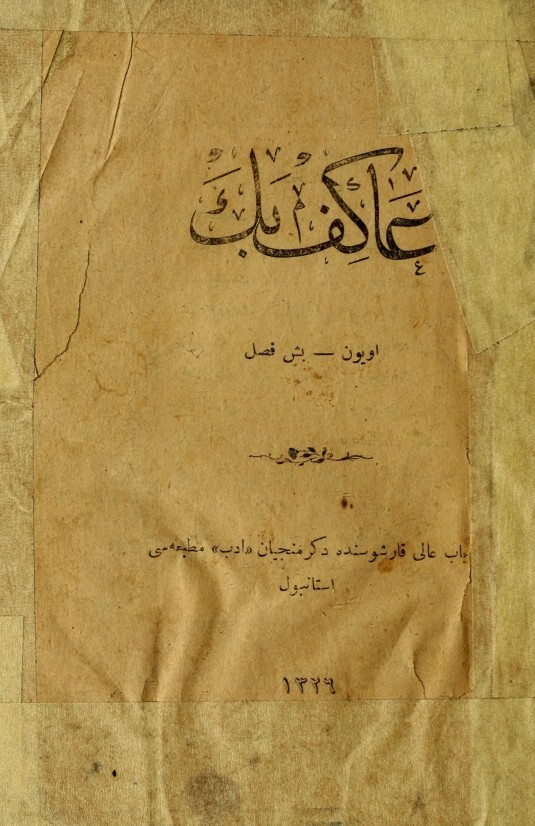 عاكف بك
اویون — بش فصل
باب عالی قارشوسنده دكرمنجیان «ادب» مطبعه‌سی
استانبول
١٣٢٦